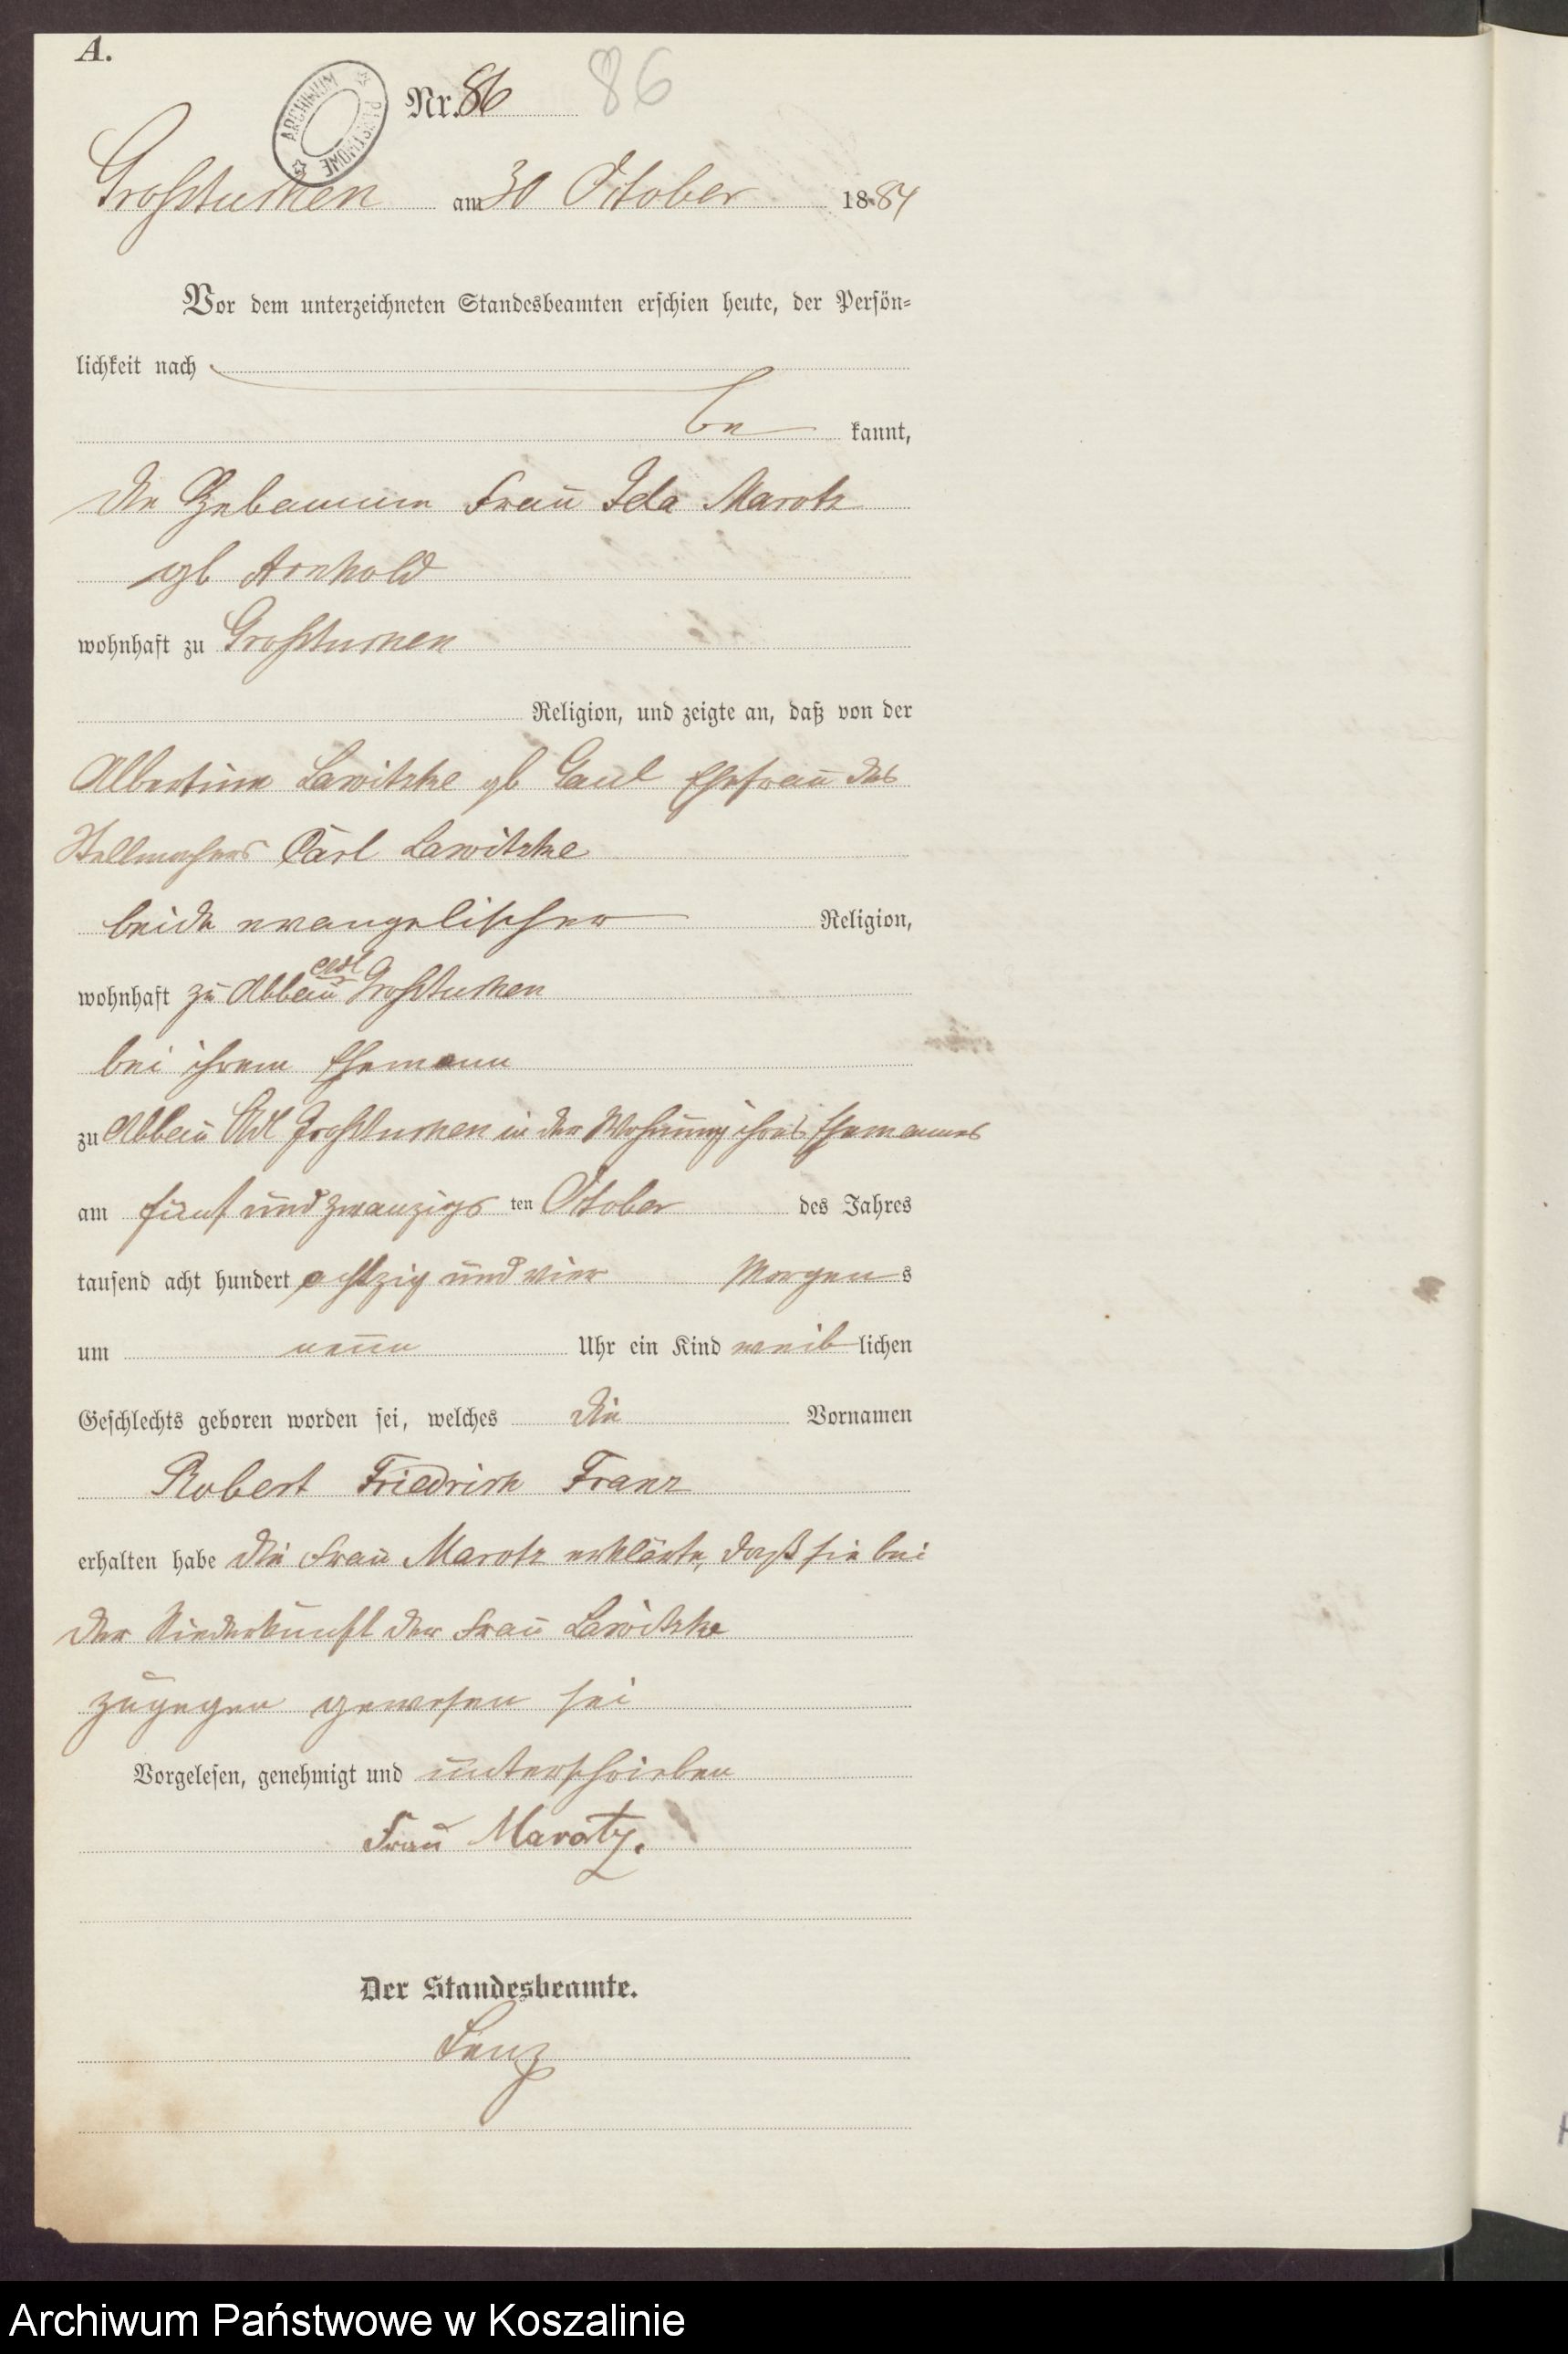 A.
ARCHIWUM PAŃSTWOWE
Nr. 86 86
Großtuchen am 30 October 1884
Vor dem unterzeichneten Standesbeamten erschien heute, der Persön-
lichkeit nach
be kannt,
die Hebamme Frau Ida Marotz
gb Arnhold
wohnhaft zu Großtuchen
Religion, und zeigte an, daß von der
Albertine Lawitzke gb Gaul Ehefrau des
Stellmachers Carl Lawitzke
beide evangelischer Religion,
wohnhaft zu Abbau adl Großtuchen
bei ihrem Ehemann
zu Abbau Adl Großtuchen in der Wohnung ihres Ehemannes
am fünf und zwanzigs ten October des Jahres
tausend acht hundert achtzig und vier Morgens
um neun Uhr ein Kind weib lichen
Geschlechts geboren worden sei, welches die Vornamen
Robert Friedrich Franz
erhalten habe die Frau Marotz erklärte, daß sie bei
der Niederkunft der Frau Lawitzke
zugegen gewesen sei
Vorgelesen, genehmigt und unterschrieben
Frau Marotz.
Der Standesbeamte.
Lenz
Archiwum Państwowe w Koszalinie